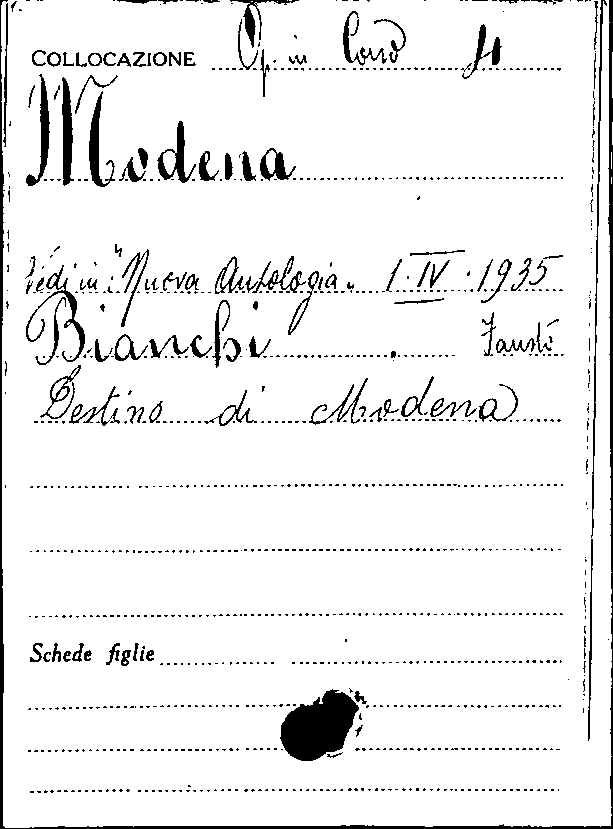 COLLOCAZIONE Op. in Corso 4
Modena
Vedi in: "Nuova Antologia" 1·IV·1935
Bianchi Fausto
Destino di Modena
Schede figlie